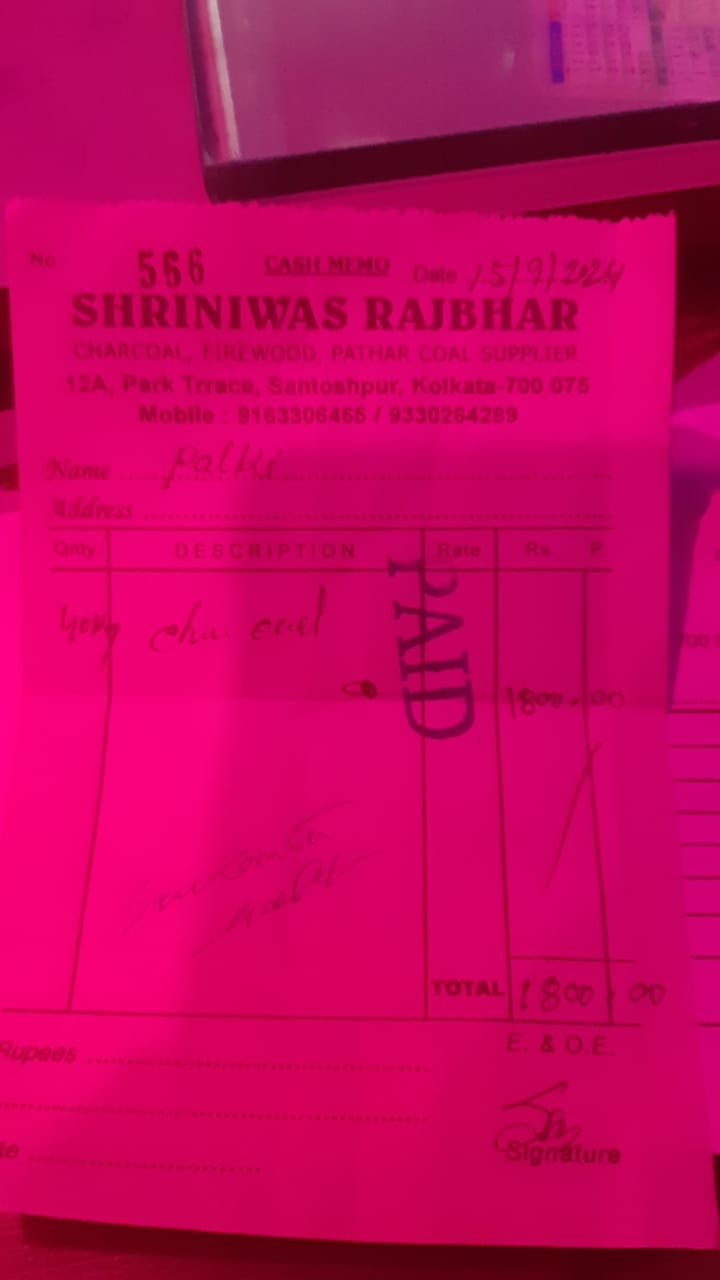 No. 566 CASH MEMO Date 15/9/2024
SHRINIWAS RAJBHAR
CHARCOAL, FIREWOOD, PATHAR COAL SUPPLIER
12A, Park Trrace, Santoshpur, Kolkata-700 075
Mobile : 9163306465 / 9330264289
Name Palki
Address
Qnty. DESCRIPTION Rate Rs. P.
40kg char coal
PAID
1800.00
TOTAL 1800.00
Rupees
E. & O.E.
Signature